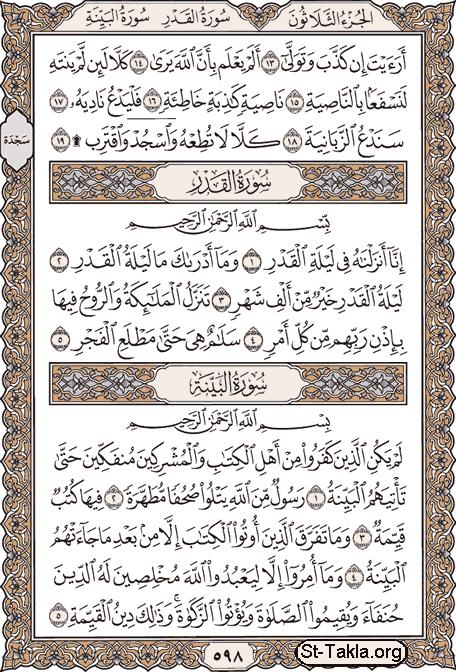 الجزء الثلاثون سورة القدر سورة البينة
أَرَءَيْتَ إِن كَذَّبَ وَتَوَلَّىٰٓ ١٣ أَلَمْ يَعْلَم بِأَنَّ ٱللَّهَ يَرَىٰ ١٤ كَلَّا لَئِن لَّمْ يَنتَهِ
لَنَسْفَعًۢا بِٱلنَّاصِيَةِ ١٥ نَاصِيَةٍ كَٰذِبَةٍ خَاطِئَةٍ ١٦ فَلْيَدْعُ نَادِيَهُۥ ١٧
سَنَدْعُ ٱلزَّبَانِيَةَ ١٨ كَلَّا لَا تُطِعْهُ وَٱسْجُدْ وَٱقْتَرِب ۩ ١٩
سجدة
سُورَةُ القَدْرِ
بِسْمِ ٱللَّهِ ٱلرَّحْمَٰنِ ٱلرَّحِيمِ
إِنَّآ أَنزَلْنَٰهُ فِى لَيْلَةِ ٱلْقَدْرِ ١ وَمَآ أَدْرَىٰكَ مَا لَيْلَةُ ٱلْقَدْرِ ٢
لَيْلَةُ ٱلْقَدْرِ خَيْرٌ مِّنْ أَلْفِ شَهْرٍ ٣ تَنَزَّلُ ٱلْمَلَٰٓئِكَةُ وَٱلرُّوحُ فِيهَا
بِإِذْنِ رَبِّهِم مِّن كُلِّ أَمْرٍ ٤ سَلَٰمٌ هِىَ حَتَّىٰ مَطْلَعِ ٱلْفَجْرِ ٥
سُورَةُ البَيِّنَةِ
بِسْمِ ٱللَّهِ ٱلرَّحْمَٰنِ ٱلرَّحِيمِ
لَمْ يَكُنِ ٱلَّذِينَ كَفَرُوا۟ مِنْ أَهْلِ ٱلْكِتَٰبِ وَٱلْمُشْرِكِينَ مُنفَكِّينَ حَتَّىٰ
تَأْتِيَهُمُ ٱلْبَيِّنَةُ ١ رَسُولٌ مِّنَ ٱللَّهِ يَتْلُوا۟ صُحُفًا مُّطَهَّرَةً ٢ فِيهَا كُتُبٌ
قَيِّمَةٌ ٣ وَمَا تَفَرَّقَ ٱلَّذِينَ أُوتُوا۟ ٱلْكِتَٰبَ إِلَّا مِنۢ بَعْدِ مَا جَآءَتْهُمُ
ٱلْبَيِّنَةُ ٤ وَمَآ أُمِرُوٓا۟ إِلَّا لِيَعْبُدُوا۟ ٱللَّهَ مُخْلِصِينَ لَهُ ٱلدِّينَ
حُنَفَآءَ وَيُقِيمُوا۟ ٱلصَّلَوٰةَ وَيُؤْتُوا۟ ٱلزَّكَوٰةَ ۚ وَذَٰلِكَ دِينُ ٱلْقَيِّمَةِ ٥
٥٩٨
St-Takla.org